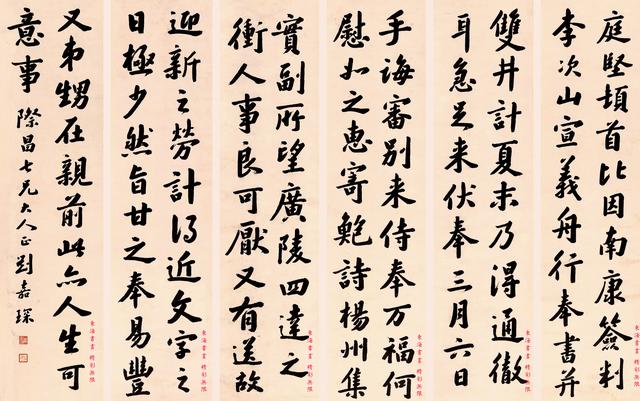 庭堅頓首比因南康簽判
李次山宣義舟行奉書并
雙井計夏末乃淂通徹
耳急足来伏奉三月六日
手誨審別来侍奉万福何
慰如之惠寄鲍詩楊州集
實副所望廣陵四達之
衝人事良可厭又有送故
迎新之勞計得近文字之
日極少然旨甘之奉易豐
又弟甥在親前此亦人生可
意事 際昌七兄大人正 劉嘉琛
東海書畫 精彩無限
東海書畫 精彩無限
東海書畫 精彩無限
東海書畫 精彩無限
東海書畫 精彩無限
東海書畫 精彩無限